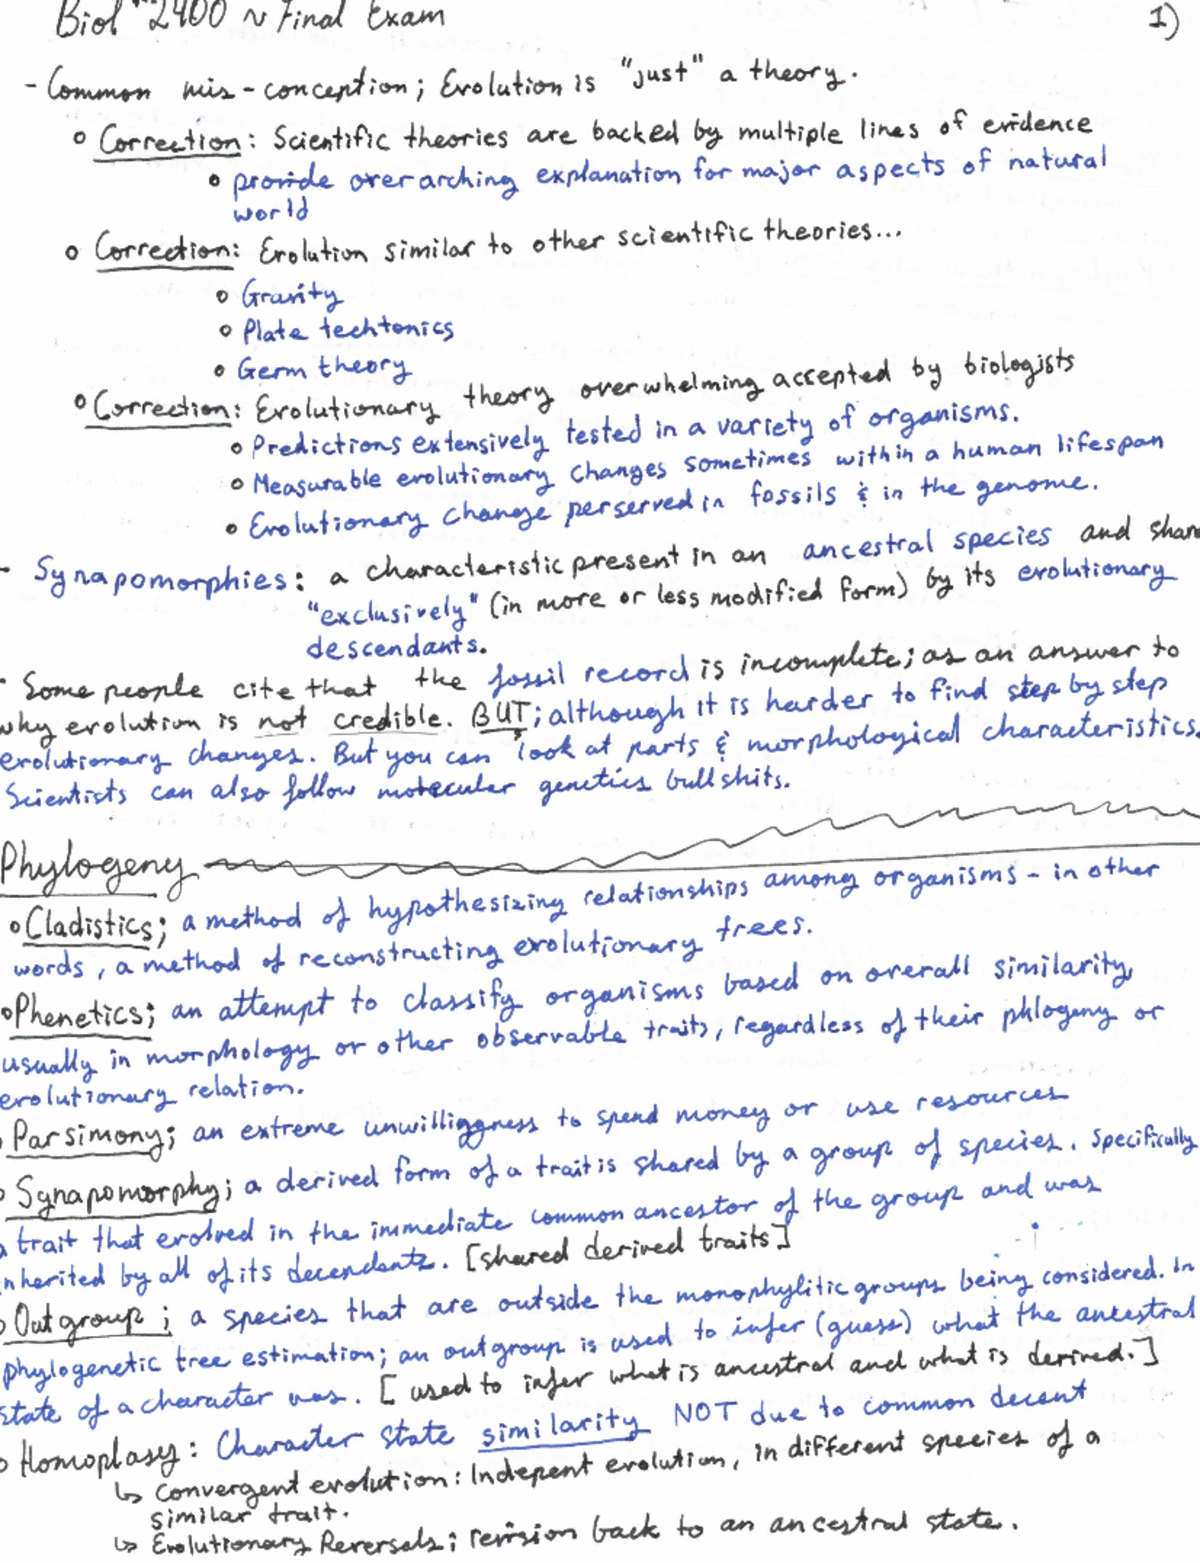 Biol 2400 ~ Final Exam
1)
- Common mis-conception; Evolution is "just" a theory.
o Correction: Scientific theories are backed by multiple lines of evidence
o provide over arching explanation for major aspects of natural
world
o Correction: Evolution similar to other scientific theories...
o Gravity
o Plate techtonics
o Germ theory
o Correction: Evolutionary theory overwhelming accepted by biologists
o Predictions extensively tested in a variety of organisms.
o Measurable evolutionary changes sometimes within a human lifespan
o Evolutionary change perserved in fossils & in the genome.
- Synapomorphies: a characteristic present in an ancestral species and share
"exclusively" (in more or less modified form) by its evolutionary
descendants.
- Some people cite that the fossil record is incomplete; as an answer to
why evolution is not credible. BUT; although it is harder to find step by step
evolutionary changes. But you can look at parts & morphological characteristics.
Scientists can also follow molecular genetics bullshits.
Phylogeny
o Cladistics; a method of hypothesizing relationships among organisms - in other
words, a method of reconstructing evolutionary trees.
o Phenetics; an attempt to classify organisms based on overall similarity,
usually in morphology or other observable traits, regardless of their phlogeny or
evolutionary relation.
o Parsimony; an extreme unwilligness to spend money or use resources
o Synapomorphy; a derived form of a trait is shared by a group of species. Specifically
a trait that evolved in the immediate common ancestor of the group and was
inherited by all of its decendants. [shared derived traits]
o Outgroup; a species that are outside the monophylitic groups being considered. In
phylogenetic tree estimation; an outgroup is used to infer (guess) what the ancestral
state of a character was. [used to infer what is ancestral and what is derived.]
o Homoplasy: Character state similarity NOT due to common decent
↳ Convergent evolution: Indepent evolution, in different species of a
similar trait.
↳ Evolutionary Reversals; revision back to an ancestral state.